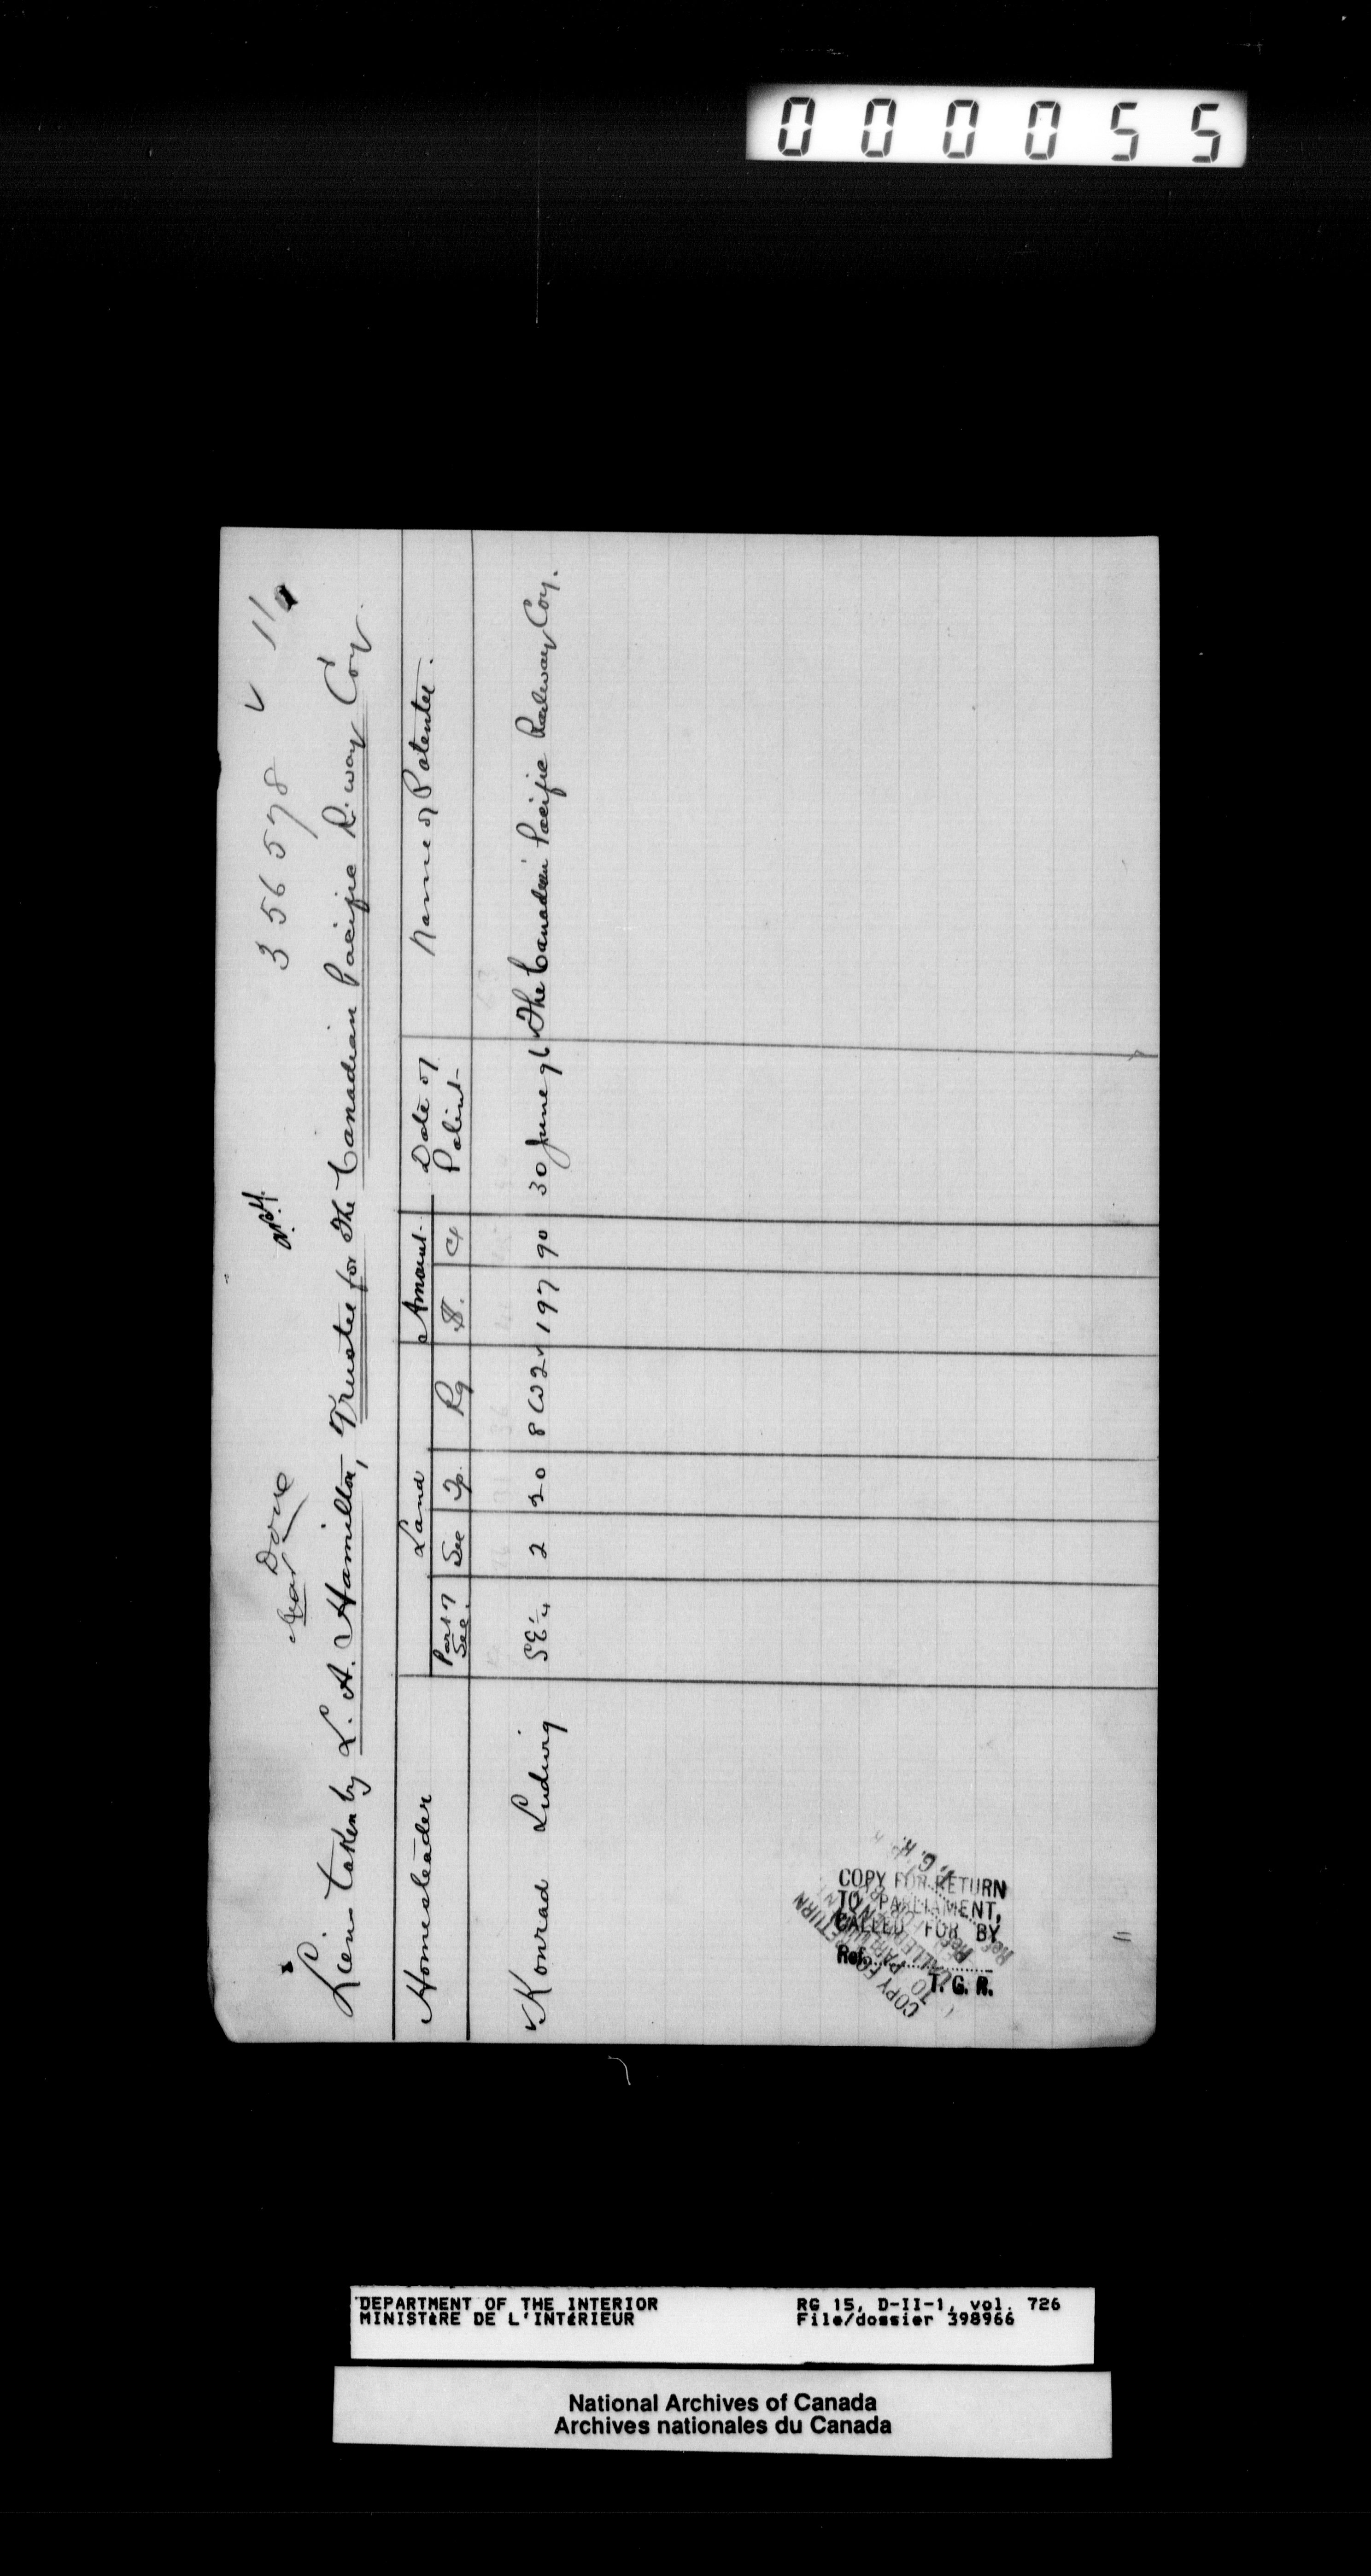 000055
356578 ✓ 11
Done
Liens taken by L. A. Hamilton, Trustee for the Canadian Pacific R'way Coy.
Homesteader Land Amount Date of Patent Name of Patentee.
Part of Sec. Sec Tp. Rg $. c
✓Konrad Ludwig SE¼ 2 20 8 W2✓ 197 90 30 June 96 ✓The Canadian Pacific Railway Coy.
COPY FOR RETURN
TO PARLIAMENT,
CALLED FOR BY
Ref.
T. G. R.
DEPARTMENT OF THE INTERIOR RG 15, D-II-1, vol. 726
MINISTÈRE DE L'INTÉRIEUR File/dossier 398966
National Archives of Canada
Archives nationales du Canada